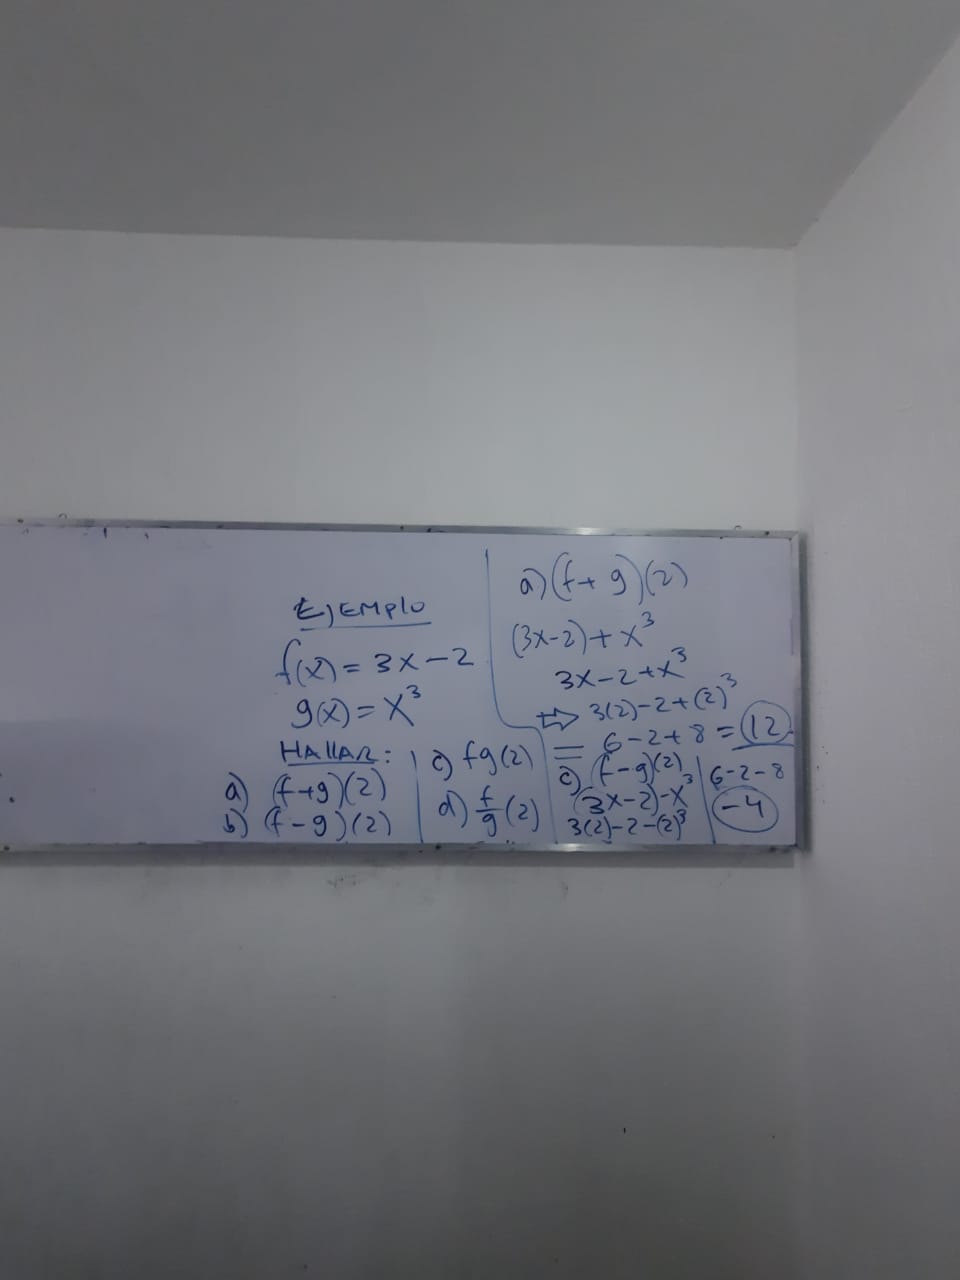 EJEMPLO
f(x) = 3x-2
g(x) = x³
HALLAR:
a) (f+g)(2)
b) (f-g)(2)
c) fg(2)
d) f/g (2)
a) (f+g)(2)
(3x-2)+x³
3x-2+x³
⇨ 3(2)-2+(2)³
= 6-2+8 = 12
c) (f-g)(2)
(3x-2)-x³
3(2)-2-(2)³
6-2-8
-4